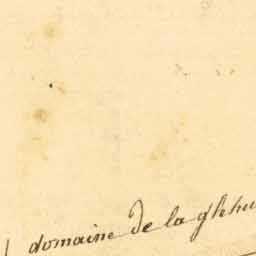 domaine de la